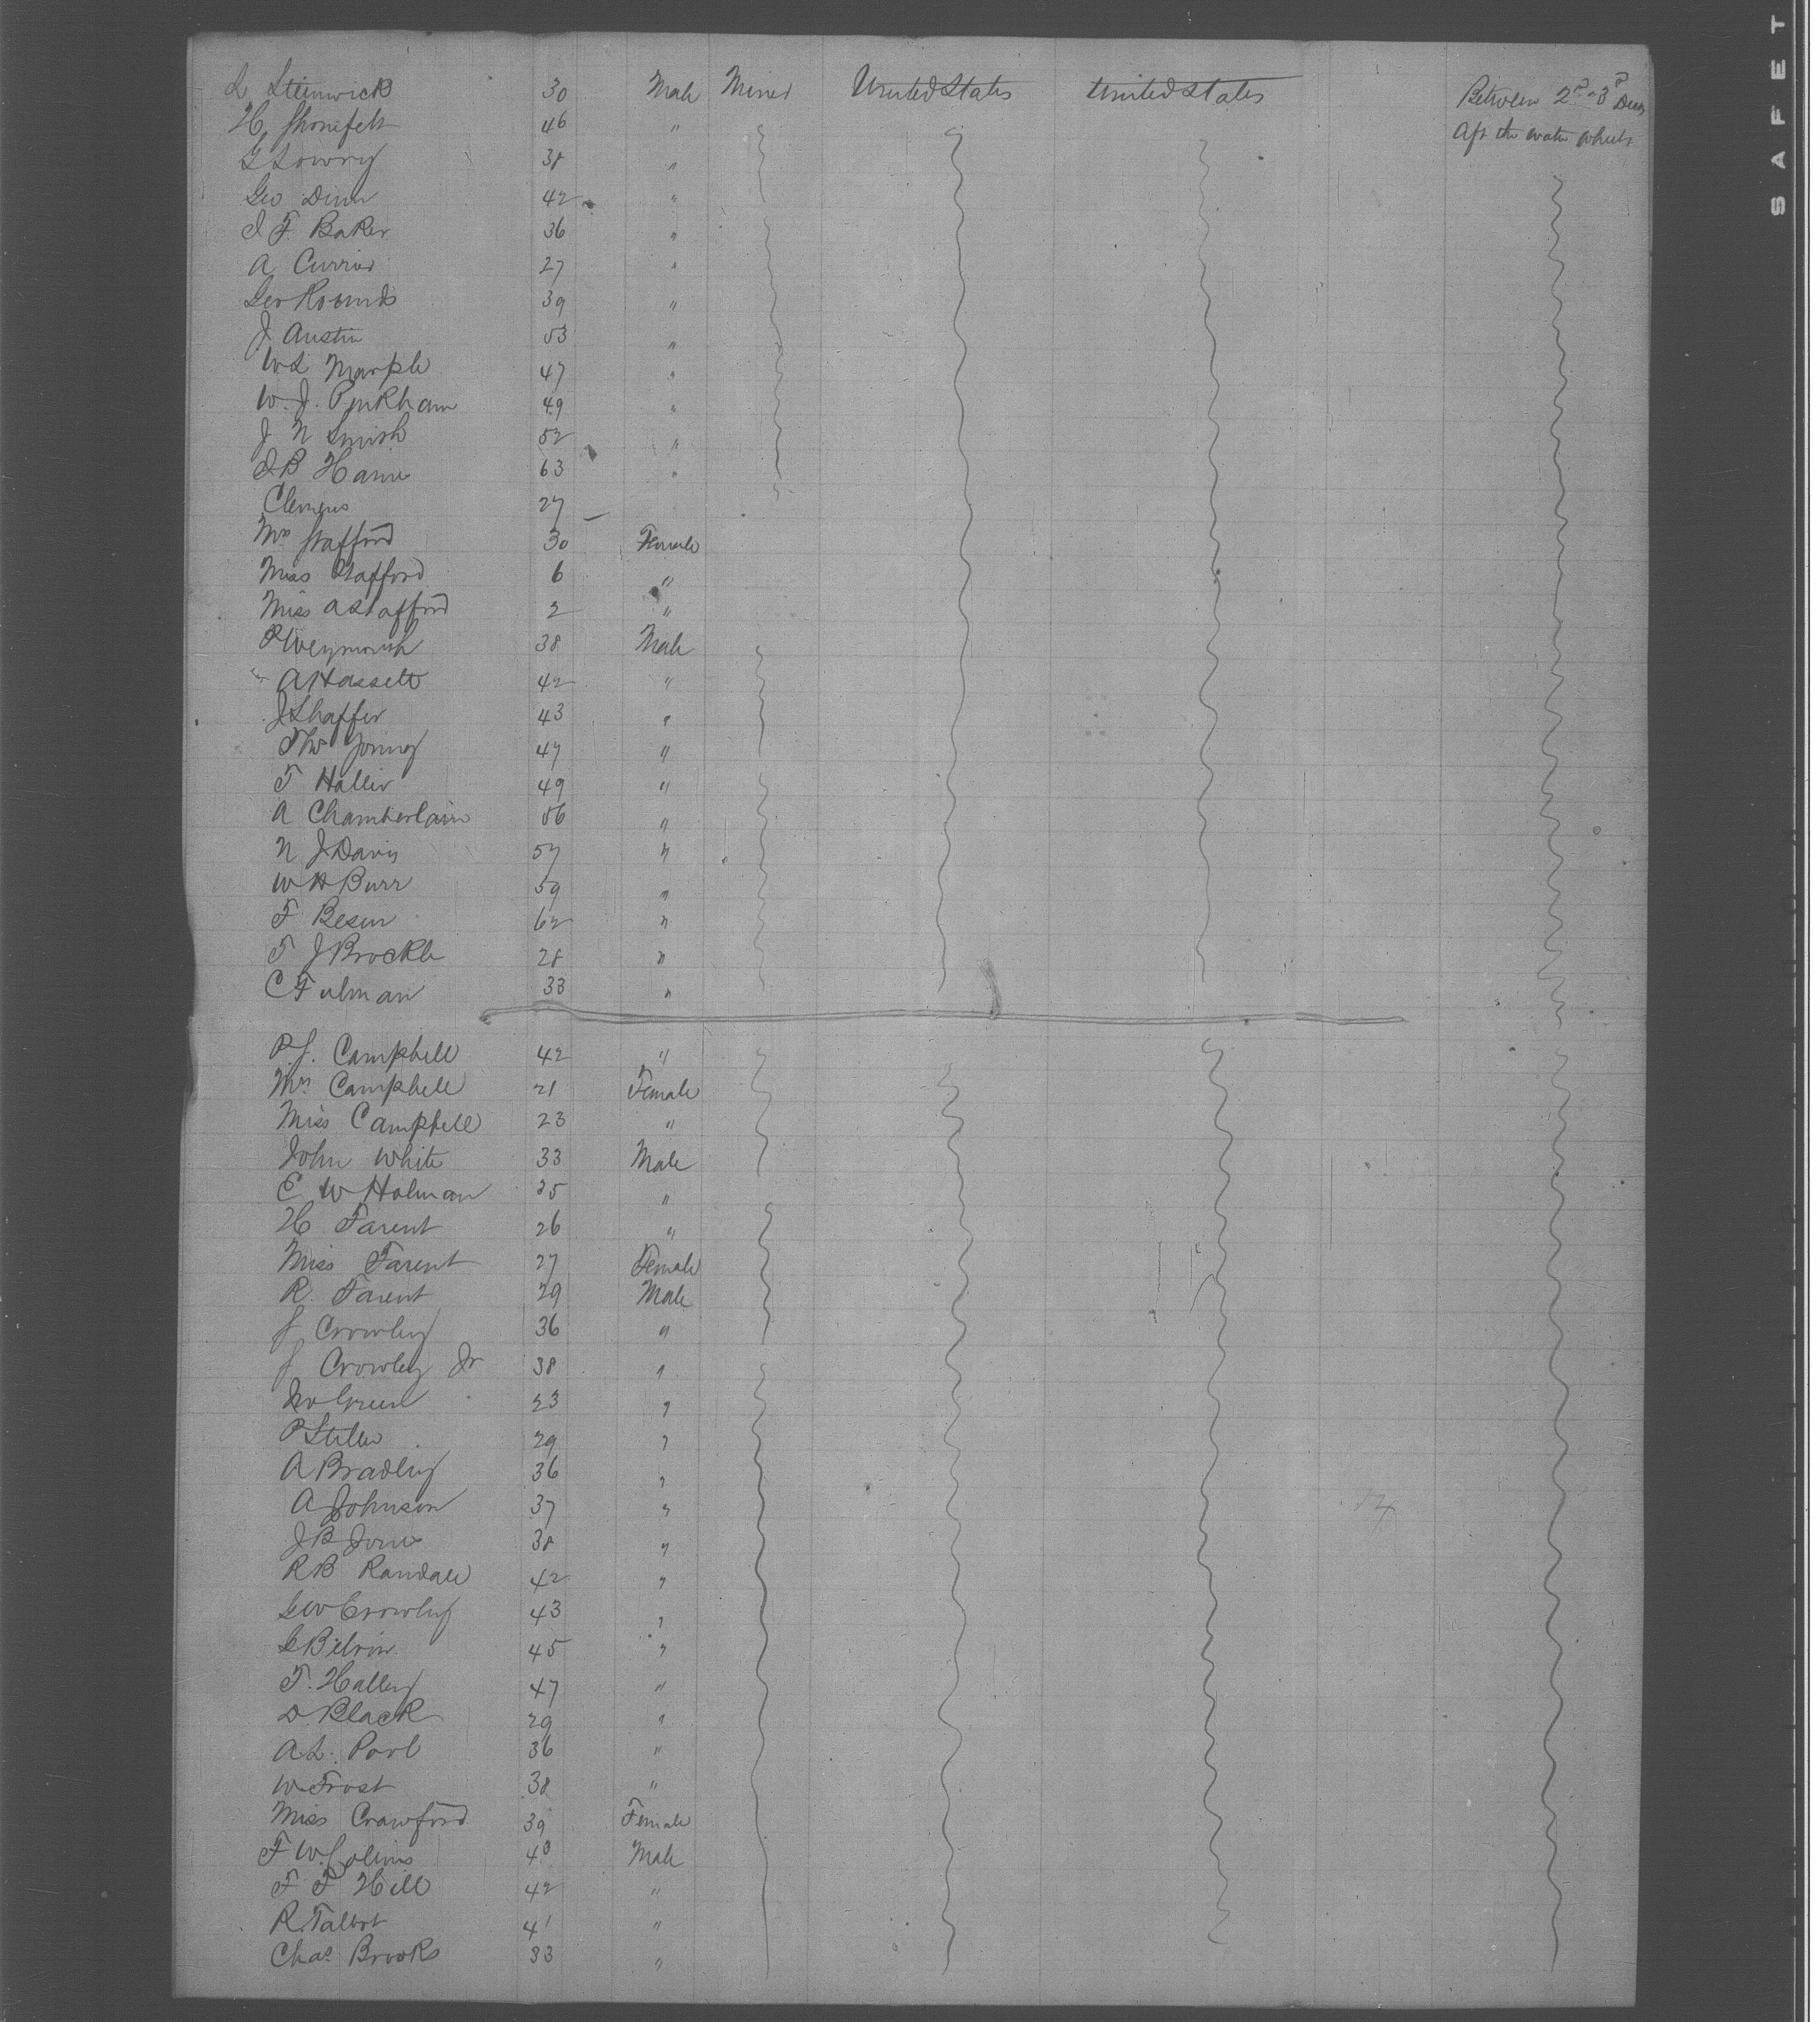 L Steinwick 30 Male Miner United States United States Between 2nd & 3d Deck
H. Shonefelt 46 " Aft the water wheels
G Lowry 38 "
Geo Dunn 42 "
I F. Baker 36 "
A Currier 27 "
Geo Rounds 39 "
J Austin 53 "
W L Marple 47 "
W. J. Pinkham 49 "
J N Smith 52 "
I B Hanie 63 "
Clemens 27 —
Mrs Stafford 30 Female
Miss Stafford 6 "
Miss A Stafford 2 "
P Weymouth 38 Male
A Hassett 42 "
J Shaffer 43 "
Thos Young 47 "
T Haller 49 "
A Chamberlain 56 "
N J Davis 57 "
W H Burr 59 "
F Besen 62 "
T J Brockle 28 "
C Fulman 33 "
P. J. Campbell 42 "
Mrs Campbell 21 Female
Miss Campbell 23 "
John White 33 Male
C W Holman 25 "
H Farent 26 "
Miss Farent 27 Female
R. Farent 29 Male
J Crowley 36 "
J Crowley Jr 38 "
Jno Green 23 "
P Stiller 29 "
A Bradley 36 "
A Johnson 37 "
J B Jones 38 "
R B Randall 42 "
Geo Crowley 43 "
45 "
T. Halley 47 "
D. Black 29 "
A L. Pool 36 "
W Frost 38 "
Miss Crawford 39 Female
F W Colins 40 Male
F F Hill 42 "
R Talbot 41 "
Chas Brooks 33 "
SAFET